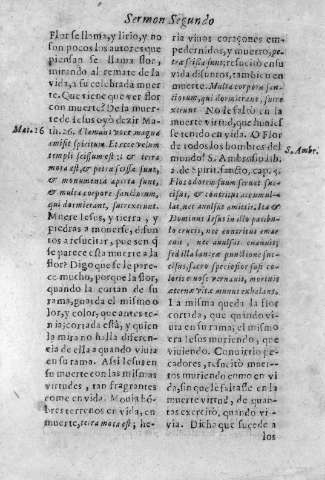 Sermon Segundo
Flor se llama, y lirio, y no
son pocos los autores que
piensan se llama flor,
mirando al remate de la
vida, a su celebrada muer
te. Que tiene que ver flor
con muerte? De la muer-
te de Iesus oyò dezir Ma-
Mat. 26
tth. 26. clamans voce magna
emisit spiritum. Et ecce velum
templi scissum est: & terra
mota est, & petra scissa sunt,
& monumenta aperta sunt,
& multa corpora sanctorum,
qui dormierant, surrexerunt.
Muere Iesus, y tierra, y
piedras a monerse, difun
tos a resucitar, pues en q̃
se parece esta muerte a la
flor? Digo que se le pare-
ce mucho, porque la flor,
quando la cortan de su
rama, guarda el mismo o
lor, y color, que antes te-
nia; cortada està, y quien
la mira no halla diferen-
cia de ella a quando viuia
en su rama. Assi Iesus en
su muerte con las mismas
virtudes, tan fragrantes
come en vida. Mouia hõ-
bres terrenos en vida, en
muerte, terra mota est; he-
ria viuos coraçones em-
pedernidos, y muerto, pe-
tra scissa sunt; resucitò en su
vida difuntos, tambien en
muerte. Multa corpora san-
ctorum, qui dormierant, surre
xerunt. No le faltò en la
muerte virtud, que huuies
se tenido en vida. O Flor
de todos los hombres del
mundo! S. Ambrosio lib.
S. Ambr.
2. de Spirit. sancto, cap. 5.
Flos odorem suum seruat suc-
cisus, & contritus accumu-
lat, nec auulsus amittit. Ita &
Dominus Iesus in illo patibu-
lo crucis, nec contritus emar
cuit, nec auulsus euanuit;
sed illa lanceæ punctione suc-
cisus, sacro speciosior fusi co-
loris
La misma queda la flor
cortada, que quando viu
uia en su rama; el mismo
era Iesus muriendo, que
viuiendo. Conuirtio pe-
cadores, resucitò muer-
tos muriendo como en vi
da, sin que le faltasse en la
muerte virtud, de quan-
tas exercitò, quando vi-
uia. Dicha que sucede a
los